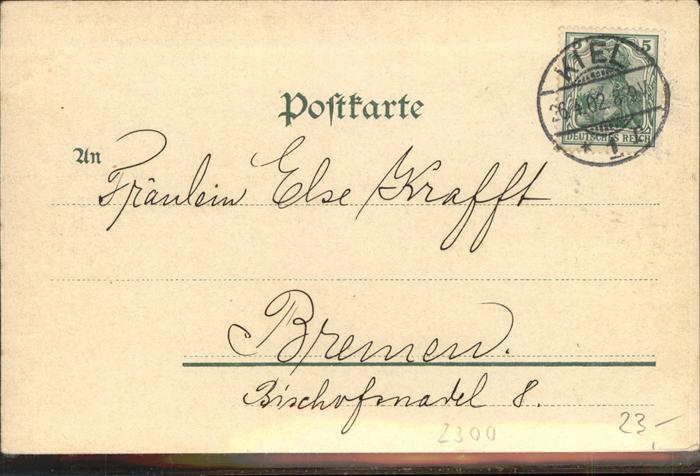 5
KIEL
26.4.02.8-9V.
* 1
DEUTSCHES REICH
Postkarte
An
Fräulein Else Krafft
Bremen.
Bischofsnadel 8.
2300
23,-